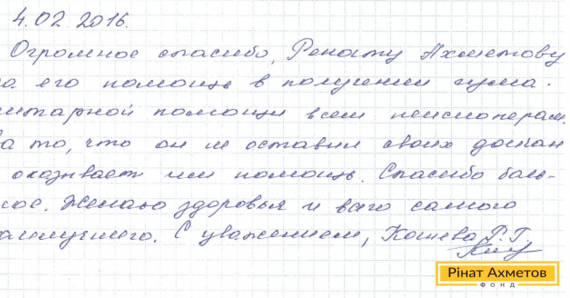 4.02 2016.
Огромное спасибо, Ренату Ахметову
за его помощь в получении гума-
нитарной помощи всем пенсионерам.
За то, что он не оставил своих дончан
оказывает им помощь. Спасибо боль-
шое. Желаю здоровья и всего самого
наилучшего. С уважением, Кошева Р.Г.
Рінат Ахметов
ФОНД